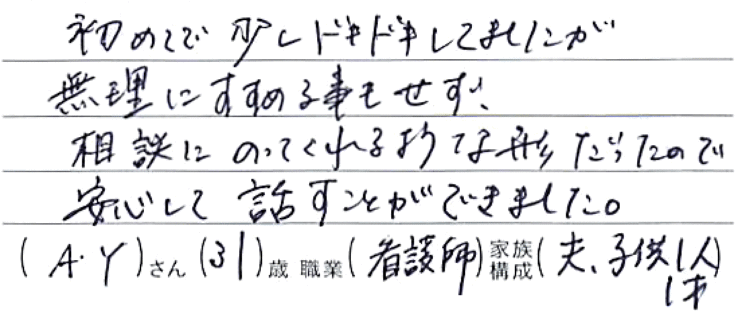 初めてで少しドキドキしてましたが
無理にすすめる事もせず、
相談にのってくれるような形だったので
安心して話すことができました。
(A・Y)さん(31)歳 職業(看護師)家族構成(夫、子供1人)
1才